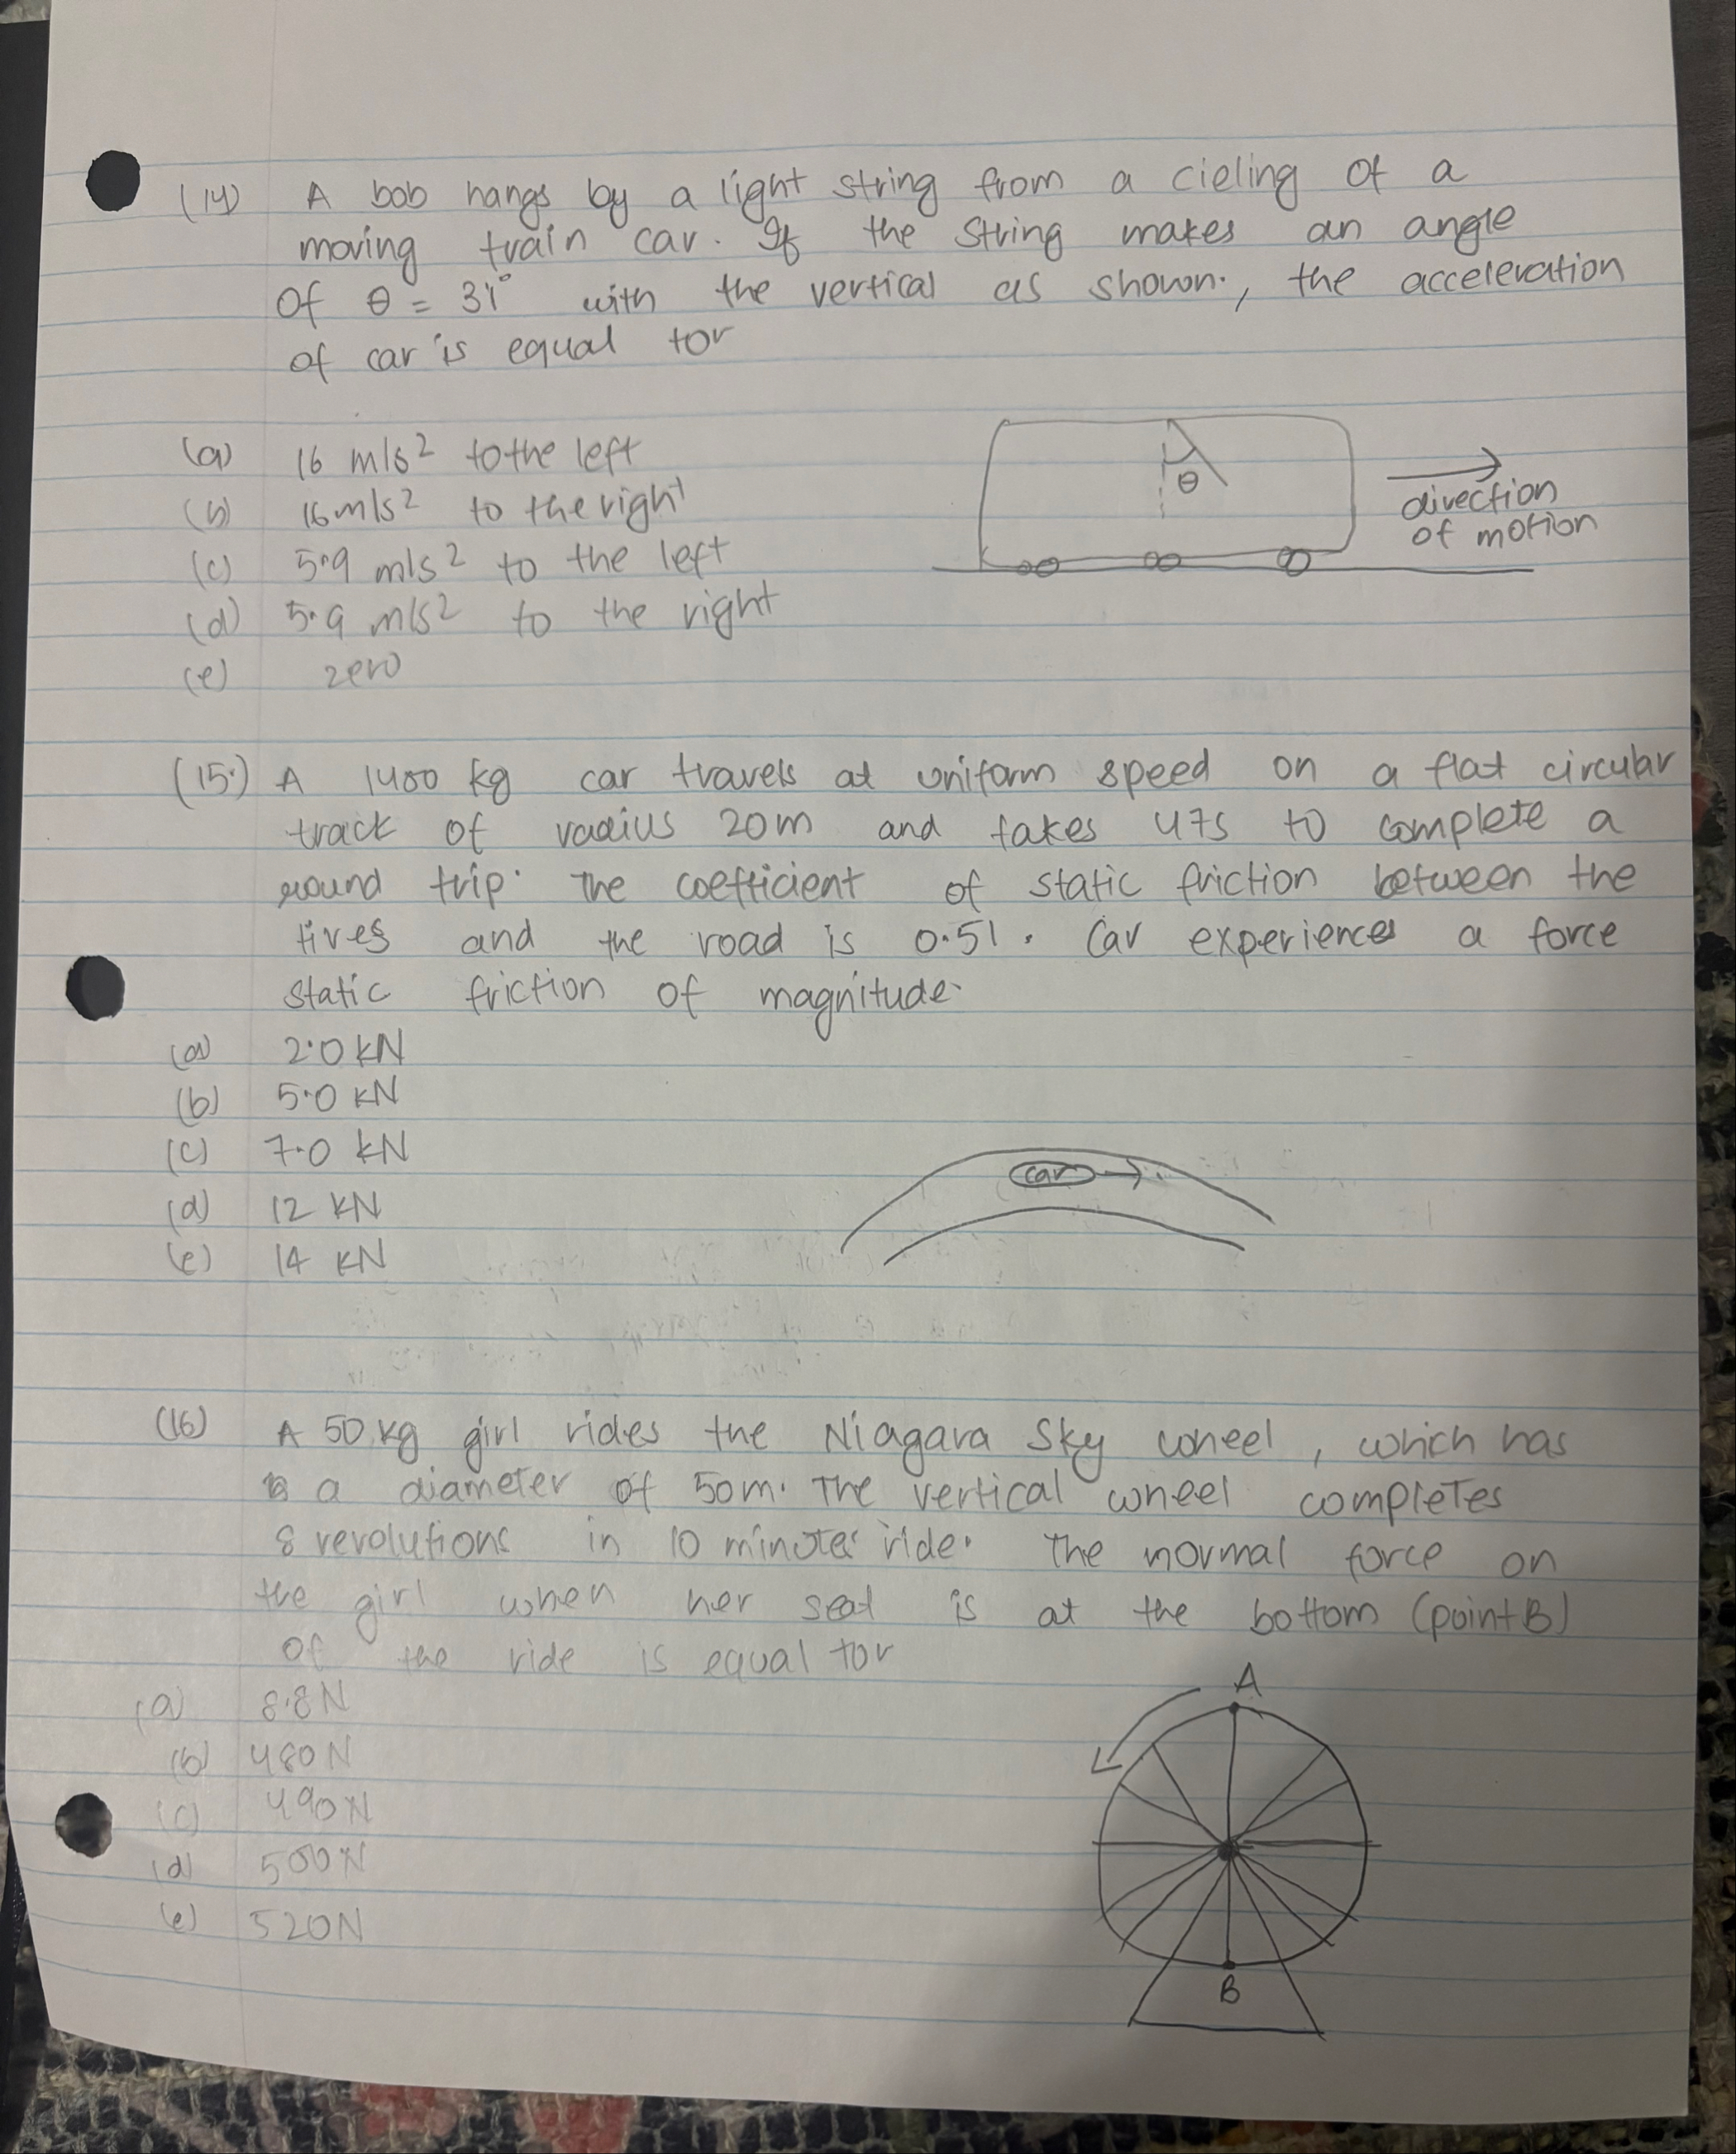 (14) A bob hangs by a light string from a cieling of a
moving train car. If the string makes an angle
of θ = 31° with the vertical as shown., the acceleration
of car is equal tor
(a) 16 m/s² to the left
(b) 16 m/s² to the right
(c) 5.9 m/s² to the left
(d) 5.9 m/s² to the right
(e) zero
θ
direction
of motion
(15.) A 1400 kg car travels at uniform speed on a flat circular
track of radius 20m and takes 47s to complete a
round trip. The coefficient of static friction between the
tires and the road is 0.51. Car experiences a force
static friction of magnitude.
(a) 2.0 kN
(b) 5.0 kN
(c) 7.0 kN
(d) 12 kN
(e) 14 kN
car
(16) A 50 kg girl rides the Niagara Sky wheel, which has
a diameter of 50m. The vertical wheel completes
8 revolutions in 10 minutes ride. The normal force on
the girl when her seat is at the bottom (point B)
of the ride is equal tor
(a) 8.8 N
(b) 480 N
(c) 490 N
(d) 500 N
(e) 520 N
A
B